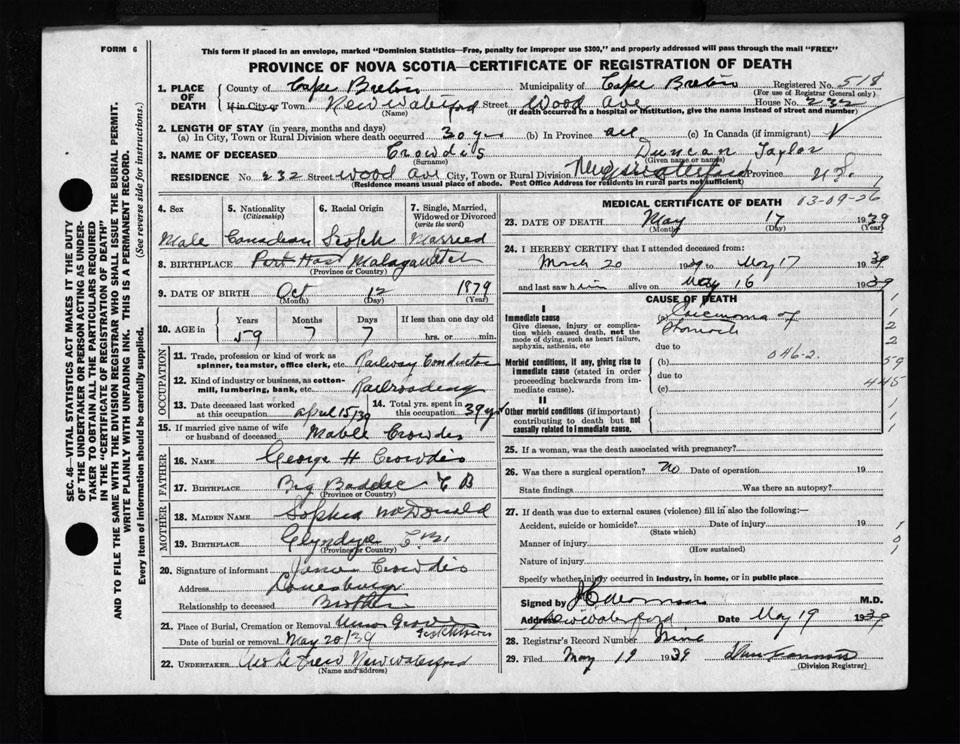 FORM 6
This form if placed in an envelope, marked "Dominion Statistics—Free, penalty for improper use $300," and properly addressed will pass through the mail "FREE"
PROVINCE OF NOVA SCOTIA—CERTIFICATE OF REGISTRATION OF DEATH
SEC. 46—VITAL STATISTICS ACT MAKES IT THE DUTY
OF THE UNDERTAKER OR PERSON ACTING AS UNDER-
TAKER TO OBTAIN ALL THE PARTICULARS REQUIRED
IN THE "CERTIFICATE OF REGISTRATION OF DEATH"
AND TO FILE THE SAME WITH THE DIVISION REGISTRAR WHO SHALL ISSUE THE BURIAL PERMIT.
WRITE PLAINLY WITH UNFADING INK. THIS IS A PERMANENT RECORD.
Every item of information should be carefully supplied. (See reverse side for instructions.)
1. PLACE OF DEATH County of Cape Breton Municipality of Cape Breton Registered No. 518
(For use of Registrar General only)
If in City or Town New Waterford Street Wood Ave House No. 232
(Name) (If death occurred in a hospital or institution, give the name instead of street and number)
2. LENGTH OF STAY (in years, months and days)
(a) In City, Town or Rural Division where death occurred 30 yrs (b) In Province all (c) In Canada (if immigrant)
3. NAME OF DECEASED Crowdis Duncan Taylor
(Surname) (Given name or names)
RESIDENCE No. 232 Street Wood Ave City, Town or Rural Division Province N.S.
(Residence means usual place of abode. Post Office Address for residents in rural parts not sufficient)
4. Sex 5. Nationality (Citizenship) 6. Racial Origin 7. Single, Married, Widowed or Divorced (write the word)
Male Canadian Scotch Married
8. BIRTHPLACE Port Hast Malagawatch
(Province or Country)
9. DATE OF BIRTH Oct 12 1879
(Month) (Day) (Year)
10. AGE in Years Months Days If less than one day old
59 7 7 hrs. or min.
OCCUPATION
11. Trade, profession or kind of work as spinner, teamster, office clerk, etc. Railway Conductor
12. Kind of industry or business, as cotton-mill, lumbering, bank, etc. Railroading
13. Date deceased last worked at this occupation April 15/39 14. Total yrs. spent in this occupation 39 yrs
15. If married give name of wife or husband of deceased Mable Crowdis
FATHER
16. NAME George H Crowdis
17. BIRTHPLACE Big Baddec C B
(Province or Country)
MOTHER
18. MAIDEN NAME Sophia McDonald
19. BIRTHPLACE Glyndyer
(Province or Country)
20. Signature of informant Crowdis
Address Louisburg
Relationship to deceased Brother
21. Place of Burial, Cremation or Removal Union Grove
Date of burial or removal May 20/39
22. UNDERTAKER New Waterford
(Name and address)
MEDICAL CERTIFICATE OF DEATH 03-09-26
23. DATE OF DEATH May 17 1939
(Month) (Day) (Year)
24. I HEREBY CERTIFY that I attended deceased from:
March 20 1939 to May 17 1939
and last saw him alive on May 16 1939
CAUSE OF DEATH
I
Immediate cause (a) Carcinoma of Stomach
Give disease, injury or complication which caused death, not the mode of dying, such as heart failure, asphyxia, asthenia, etc
due to
Morbid conditions, if any, giving rise to immediate cause (stated in order proceeding backwards from immediate cause). (b) 046-2.
due to
(c)
II
Other morbid conditions (if important) contributing to death but not causally related to immediate cause.
1
1
2
2
59
445
1
1
1
25. If a woman, was the death associated with pregnancy?
26. Was there a surgical operation? No Date of operation 19
State findings Was there an autopsy?
27. If death was due to external causes (violence) fill in also the following:—
Accident, suicide or homicide? Date of injury 19
(State which)
Manner of injury
(How sustained)
Nature of injury
Specify whether injury occurred in industry, in home, or in public place
1
0
1
Signed by M.D.
Address New Waterford Date May 19 1939
28. Registrar's Record Number Nine
29. Filed May 19 1939
(Division Registrar)